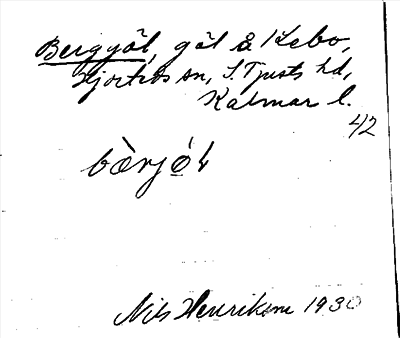 Berggöl, göl å Kebo,
Hjorteds sn, S. Tjusts hd,
Kalmar l.
42
bærjø̀l
Nils Henriksson 1930